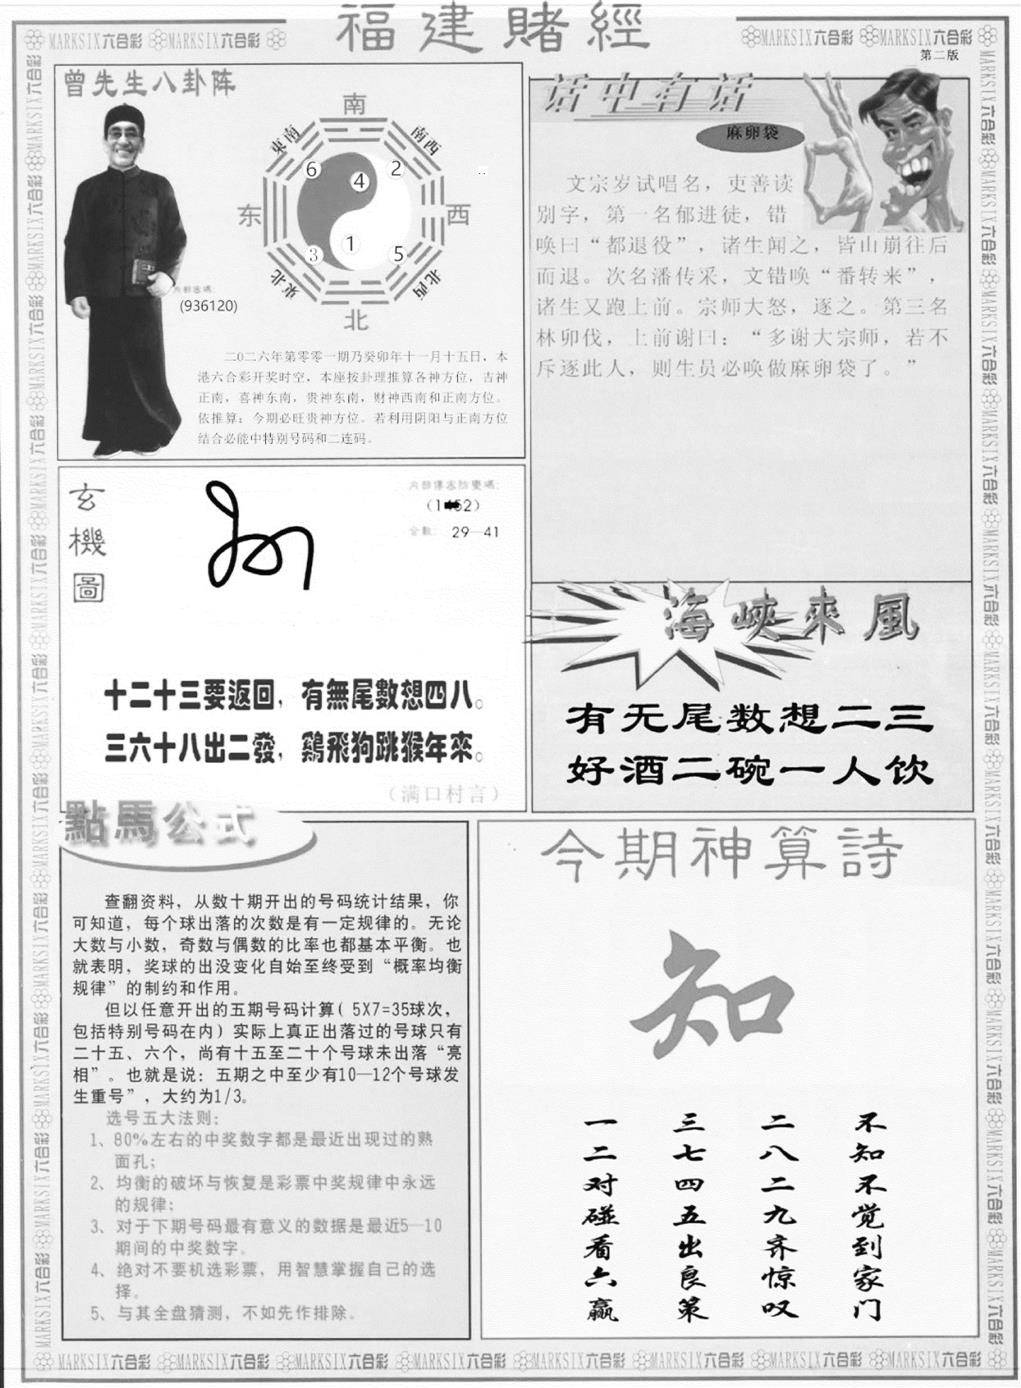 福建賭經
MARKSIX六合彩 MARKSIX六合彩
MARKSIX六合彩 MARKSIX六合彩
第二版
曾先生八卦阵
南
東南
南西
东
西
東北
北西
北
6
4
2
3
1
5
内部密碼:
(936120)
二0二六年第零零一期乃癸卯年十一月十五日，本
港六合彩开奖时空，本座按卦理推算各神方位，吉神
正南，喜神东南，贵神东南，财神西南和正南方位。
依推算：今期必旺贵神方位。若利用阴阳与正南方位
结合必能中特别号码和二连码。
话中有话
麻卵袋
文宗岁试唱名，吏善读
别字，第一名郁进徒，错
唤曰“都退役”，诸生闻之，皆山崩往后
而退。次名潘传采，文错唤“番转来”，
诸生又跑上前。宗师大怒，逐之。第三名
林卯伐，上前谢曰：“多谢大宗师，若不
斥逐此人，则生员必唤做麻卵袋了。”
玄機圖
内部傳密防變碼:
29—41
十二十三要返回，有無尾數想四八。
三六十八出二發，鷄飛狗跳猴年來。
（满口村言）
海峽來風
有无尾数想二三
好酒二碗一人饮
點馬公式
查翻资料，从数十期开出的号码统计结果，你
可知道，每个球出落的次数是有一定规律的。无论
大数与小数，奇数与偶数的比率也都基本平衡。也
就表明，奖球的出没变化自始至终受到“概率均衡
规律”的制约和作用。
但以任意开出的五期号码计算( 5X7=35球次，
包括特别号码在内) 实际上真正出落过的号球只有
二十五、六个，尚有十五至二十个号球未出落“亮
相”。也就是说：五期之中至少有10—12个号球发
生重号”，大约为1/3。
选号五大法则:
1、80%左右的中奖数字都是最近出现过的熟
面孔；
2、均衡的破坏与恢复是彩票中奖规律中永远
的规律；
3、对于下期号码最有意义的数据是最近5—10
期间的中奖数字。
4、绝对不要机选彩票，用智慧掌握自己的选
择。
5、与其全盘猜测，不如先作排除。
今期神算詩
知
不知不觉到家门
二八二九齐惊叹
三七四五出良策
一二对碰看六赢
MARKSIX六合彩 MARKSIX六合彩 MARKSIX六合彩 MARKSIX六合彩 MARKSIX六合彩 MARKSIX六合彩 MARKSIX六合彩 MARKSIX六合彩